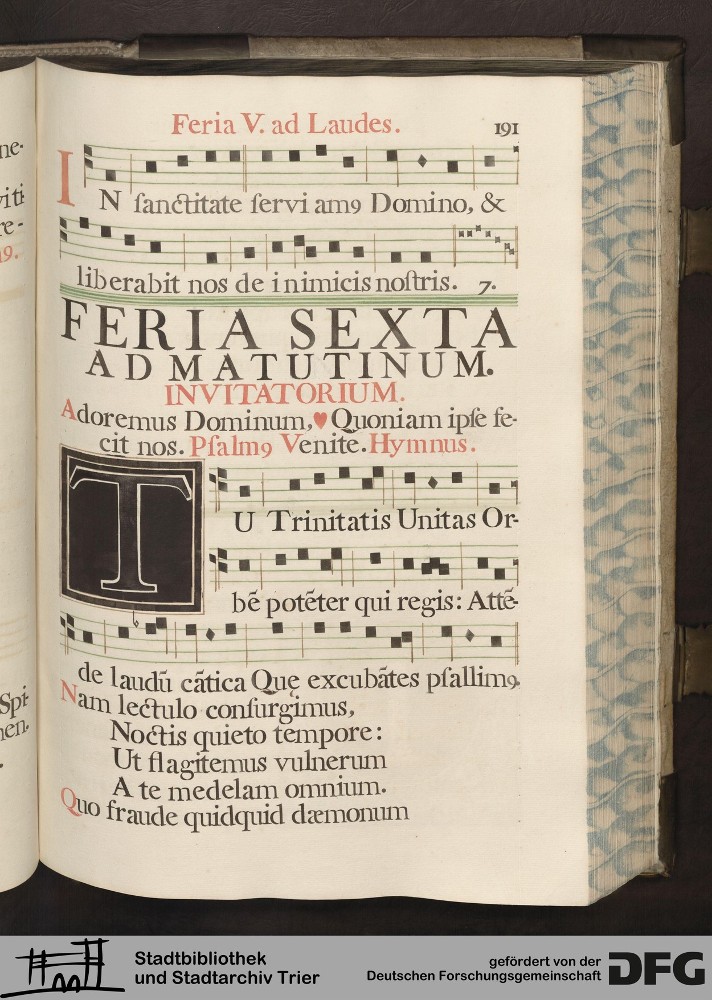 Feria V. ad Laudes. 191
IN sanctitate serviamꝰ Domino, &
liberabit nos de inimicis nostris. 7.
FERIA SEXTA
AD MATUTINUM.
INVITATORIUM.
Adoremus Dominum, ♥ Quoniam ipse fe-
cit nos. Psalmꝰ Venite. Hymnus.
TU Trinitatis Unitas Or-
bē potēter qui regis: Attē-
de laudū cātica Quę excubātes psallimꝰ.
Nam lectulo consurgimus,
Noctis quieto tempore:
Ut flagitemus vulnerum
A te medelam omnium.
Quo fraude quidquid dæmonum
ne-
viti
re-
Spi-
men.
Stadtbibliothek
und Stadtarchiv Trier
gefördert von der
Deutschen Forschungsgemeinschaft
DFG